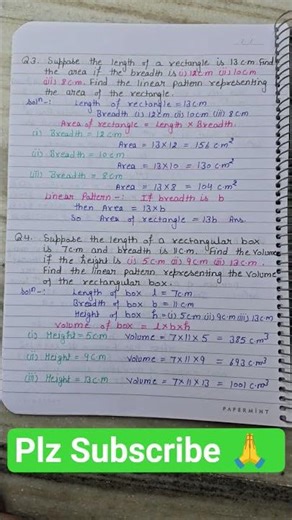 Q3. Suppose the length of a rectangle is 13cm. Find
the area if the breadth is (i) 12cm (ii) 10cm
(iii) 8cm. Find the linear pattern representing
the area of the rectangle.
Soln-: Length of rectangle = 13cm
Breadth (i) 12cm (ii) 10cm (iii) 8cm
Area of rectangle = Length × Breadth
(i) Breadth = 12cm
Area = 13×12 = 156 cm²
(ii) Breadth = 10cm
Area = 13×10 = 130 cm²
(iii) Breadth = 8cm
Area = 13×8 = 104 cm²
Linear Pattern-: If breadth is b
then Area = 13×b
So Area of rectangle = 13b Ans.
Q4. Suppose the length of a rectangular box
is 7cm and breadth is 11cm. Find the volume
if the height is (i) 5cm (ii) 9cm (iii) 13cm.
Find the linear pattern representing the volume
of the rectangular box.
Soln-: Length of box l = 7cm
Breadth of box b = 11cm
Height of box h = (i) 5cm (ii) 9cm (iii) 13cm
Volume of box = l×b×h
(i) Height = 5cm Volume = 7×11×5 = 385 cm³
(ii) Height = 9cm Volume = 7×11×9 = 693 cm³
(iii) Height = 13cm Volume = 7×11×13 = 1001 cm³
PAPERMINT
Plz Subscribe 🙏